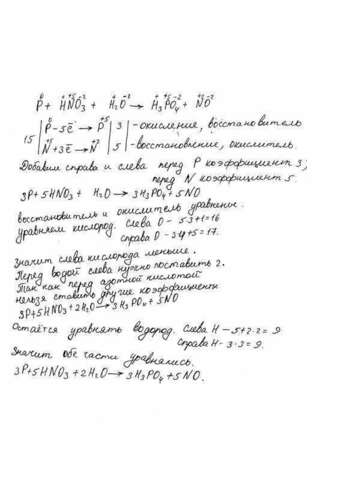 P⁰ + H⁺N⁺⁵O₃⁻² + H₂⁺O⁻² → H₃⁺P⁺⁵O₄⁻² + N⁺²O⁻²
P⁰ - 5e̅ → P⁺⁵ | 3 | - окисление, восстановитель
15 | N⁺⁵ + 3e̅ → N⁺² | 5 | - восстановление, окислитель.
Добавим справа и слева перед P коэффициент 3;
перед N коэффициент 5.
3P + 5HNO₃ + H₂O → 3H₃PO₄ + 5NO
восстановитель и окислитель уравнены.
уравняем кислород. Слева O - 5·3+1=16
справа O - 3·4+5=17.
Значит слева кислорода меньше.
Перед водой слева нужно поставить 2.
Так как перед азотной кислотой
нельзя ставить другие коэффициенты
3P+5HNO₃+2H₂O → 3H₃PO₄+5NO
Остаётся уравнять водород. Слева H - 5+2·2=9
справа H - 3·3=9.
Значит обе части уравнялись.
3P+5HNO₃ +2H₂O → 3H₃PO₄+5NO.